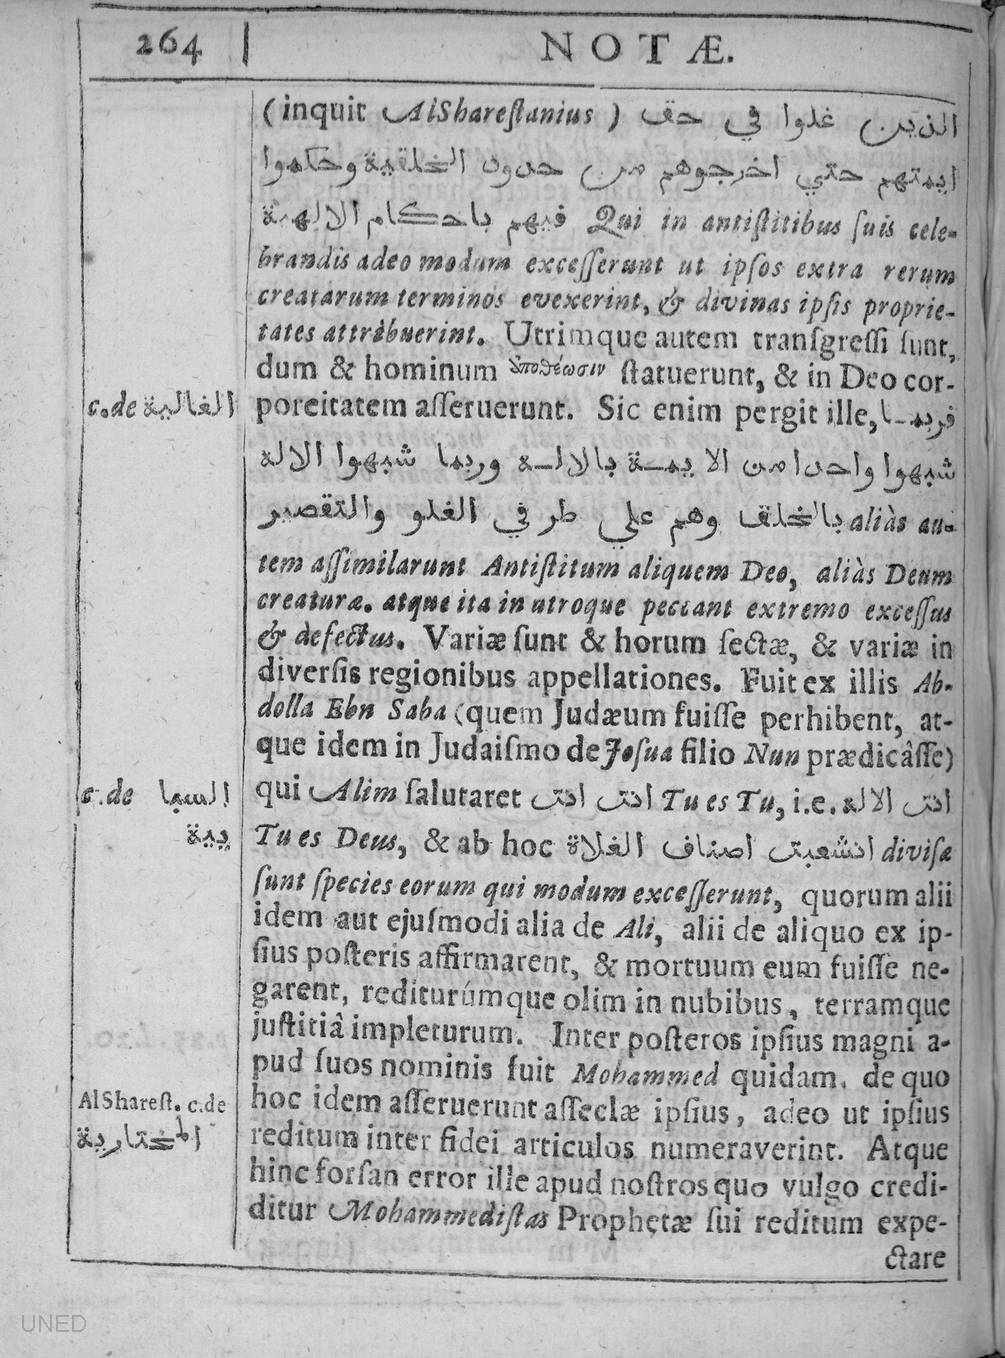 264
NOTÆ.
(inquit AlShareſtanius) الذين غلوا في حق
ايمتهم حتي اخرجوهم من حدود الخلقية وحكموا
فيهم باحكام الالهية Qui in antiſtitibus ſuis cele-
brandis adeo modum exceſſerunt ut ipſos extra rerum
creatarum terminos evexerint, & divinas ipſis proprie-
tates attribuerint. Utrimque autem tranſgreſſi ſunt,
dum & hominum ἀποθέωσιν ſtatuerunt, & in Deo cor-
c. de الغالية
poreitatem aſſeruerunt. Sic enim pergit ille, فربمـا
شبهوا واحدا من الايمـة بالالـه وربما شبهوا الاله
بالخلق وهم علي طرفي الغلو والتقصير aliàs au-
tem aſſimilarunt Antiſtitum aliquem Deo, aliàs Deum
creaturæ. atque ita in utroque peccant extremo exceſſus
& defectus. Variæ ſunt & horum ſectæ, & variæ in
diverſis regionibus appellationes. Fuit ex illis Ab-
dolla Ebn Saba (quem Judæum fuiſſe perhibent, at-
que idem in Judaiſmo de Joſua filio Nun prædicâſſe)
c. de السبا
يية
qui Alim ſalutaret انت انت Tu es Tu, i.e. انت الاله
Tu es Deus, & ab hoc انشعبت اصناف الغلاة diviſæ
ſunt ſpecies eorum qui modum exceſſerunt, quorum alii
idem aut ejuſmodi alia de Ali, alii de aliquo ex ip-
ſius poſteris affirmarent, & mortuum eum fuiſſe ne-
garent, rediturúmque olim in nubibus, terramque
juſtitiâ impleturum. Inter poſteros ipſius magni a-
pud ſuos nominis fuit Mohammed quidam, de quo
AlShareſt. c. de
المختارية
hoc idem aſſeruerunt aſſeclæ ipſius, adeo ut ipſius
reditum inter fidei articulos numeraverint. Atque
hinc forſan error ille apud noſtros quo vulgo credi-
ditur Mohammediſtas Prophetæ ſui reditum expe-
ctare
UNED